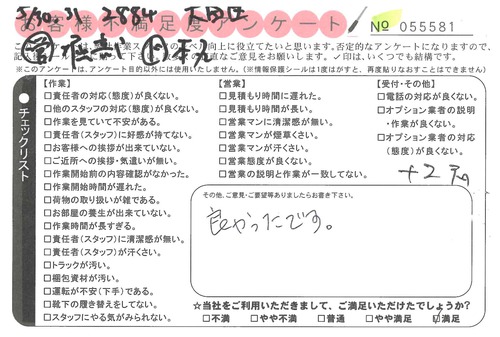 5/30.31 2884 大田区
お客様不満足度アンケート
No 055581
業スタッフのスキル向上に役立てたいと思います。否定的なアンケートになりますので、
直なご意見をお願いします。✓印は、いくつでも結構です。
※このアンケートは、アンケート目的以外には使用いたしません。(※情報保護シールは1度はがすと、再度貼りなおすことはできません)
チェックリスト
【作業】
□責任者の対応(態度)が良くない。
□他のスタッフの対応(態度)が良くない。
□作業を見ていて不安がある。
□責任者(スタッフ)に好感が持てない。
□お客様への挨拶が出来ていない。
□ご近所への挨拶・気遣いが無い。
□作業開始前の内容確認がなかった。
□作業開始時間が遅れた。
□荷物の取り扱いが雑である。
□お部屋の養生が出来ていない。
□作業時間が長すぎる。
□責任者(スタッフ)に清潔感が無い。
□責任者(スタッフ)が汗くさい。
□トラックが汚い。
□梱包資材が汚い。
□運転が不安(下手)である。
□靴下の履き替えをしてない。
□スタッフにやる気がみられない。
【営業】
□見積もり時間に遅れた。
□見積もり時間が長い。
□営業マンに清潔感が無い。
□営業マンが煙草くさい。
□営業マンが汗くさい。
□営業態度が良くない。
□営業の説明と作業が一致してない。
【受付・その他】
□電話の対応が良くない。
□オプション業者の説明
・作業が良くない。
□オプション業者の対応
(態度)が良くない。
その他、ご意見・ご要望等ありましたらお書き下さい。
良かったです。
☆当社をご利用いただきまして、ご満足いただけたでしょうか?
□不満 □やや不満 □普通 □やや満足 ☑満足